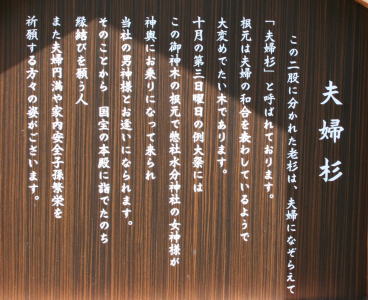 夫婦杉
この二股に分かれた老杉は、夫婦になぞらえて
「夫婦杉」と呼ばれております。
根元は夫婦の和合を表わしているようで
大変めでたい木であります。
十月の第三日曜日の例大祭には
この御神木の根元で惣社水分神社の女神様が
神輿にお乗りになって来られ
当社の男神様とお逢いになられます。
そのことから 国宝の本殿に詣でたのち
縁結びを願う人
また夫婦円満や家内安全子孫繁栄を
祈願する方々の姿がございます。